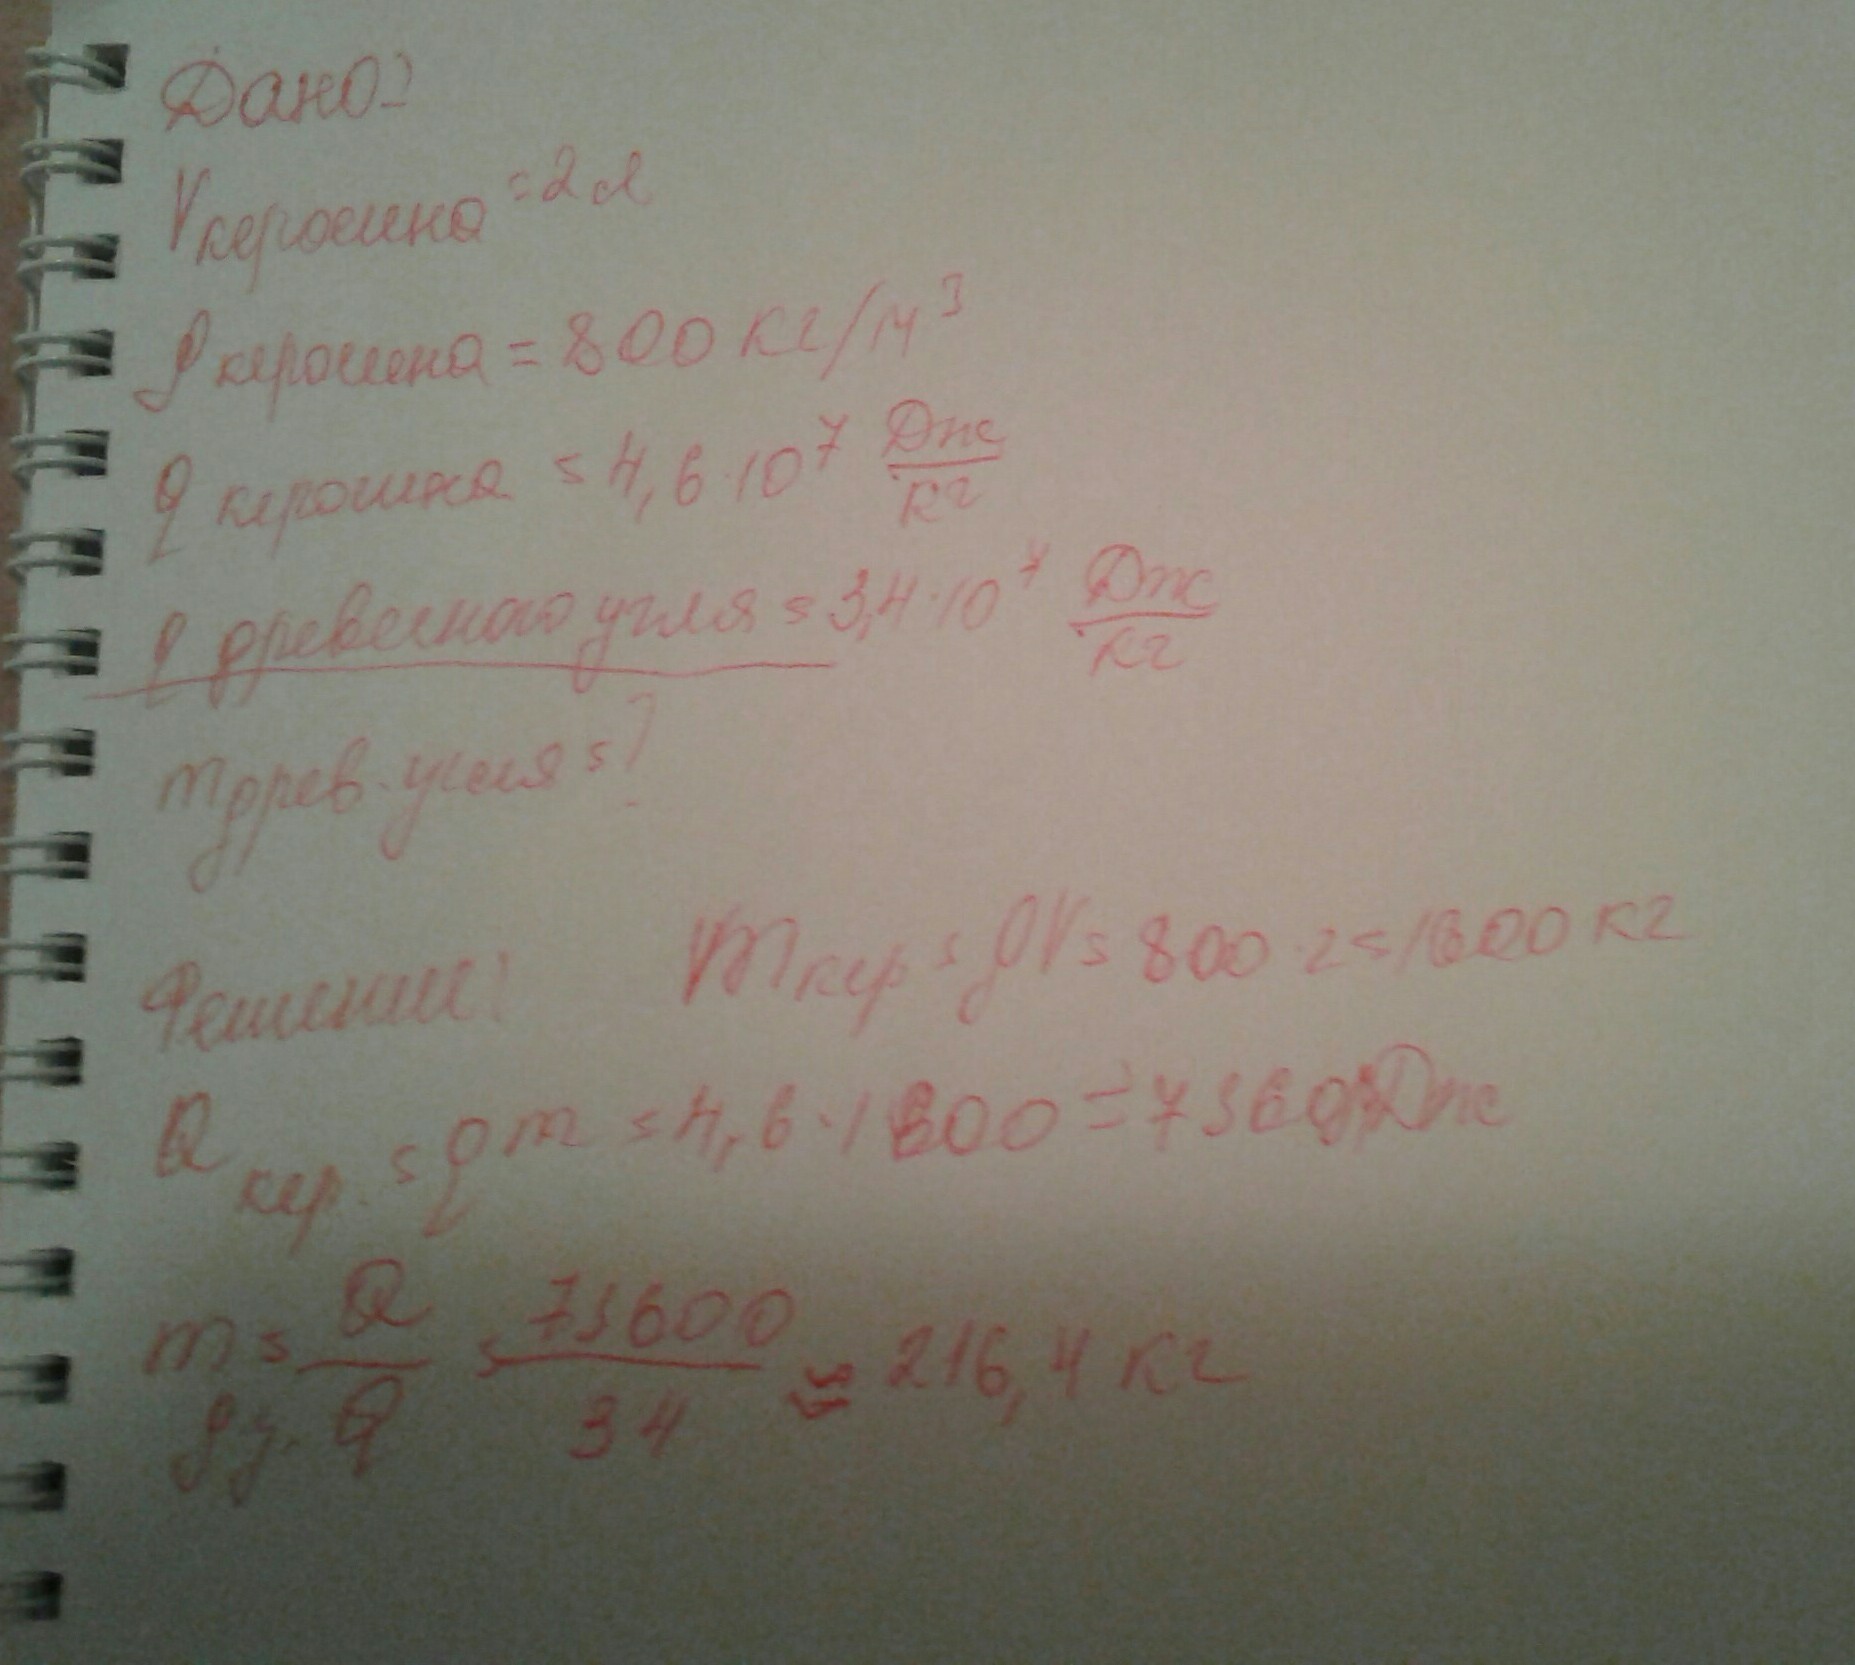 Дано:
V керосина = 2 л
ρ керосина = 800 кг/м³
q керосина = 4,6·10⁷ Дж/кг
q древесного угля = 3,4·10⁷ Дж/кг
m древ. угля = ?
Решение: m кер = ρV = 800·2 = 1600 кг
Q кер. = qm = 4,6·1600 = 7360 Дж
m д.у. = Q/q = 73600/34 ≈ 216,4 кг